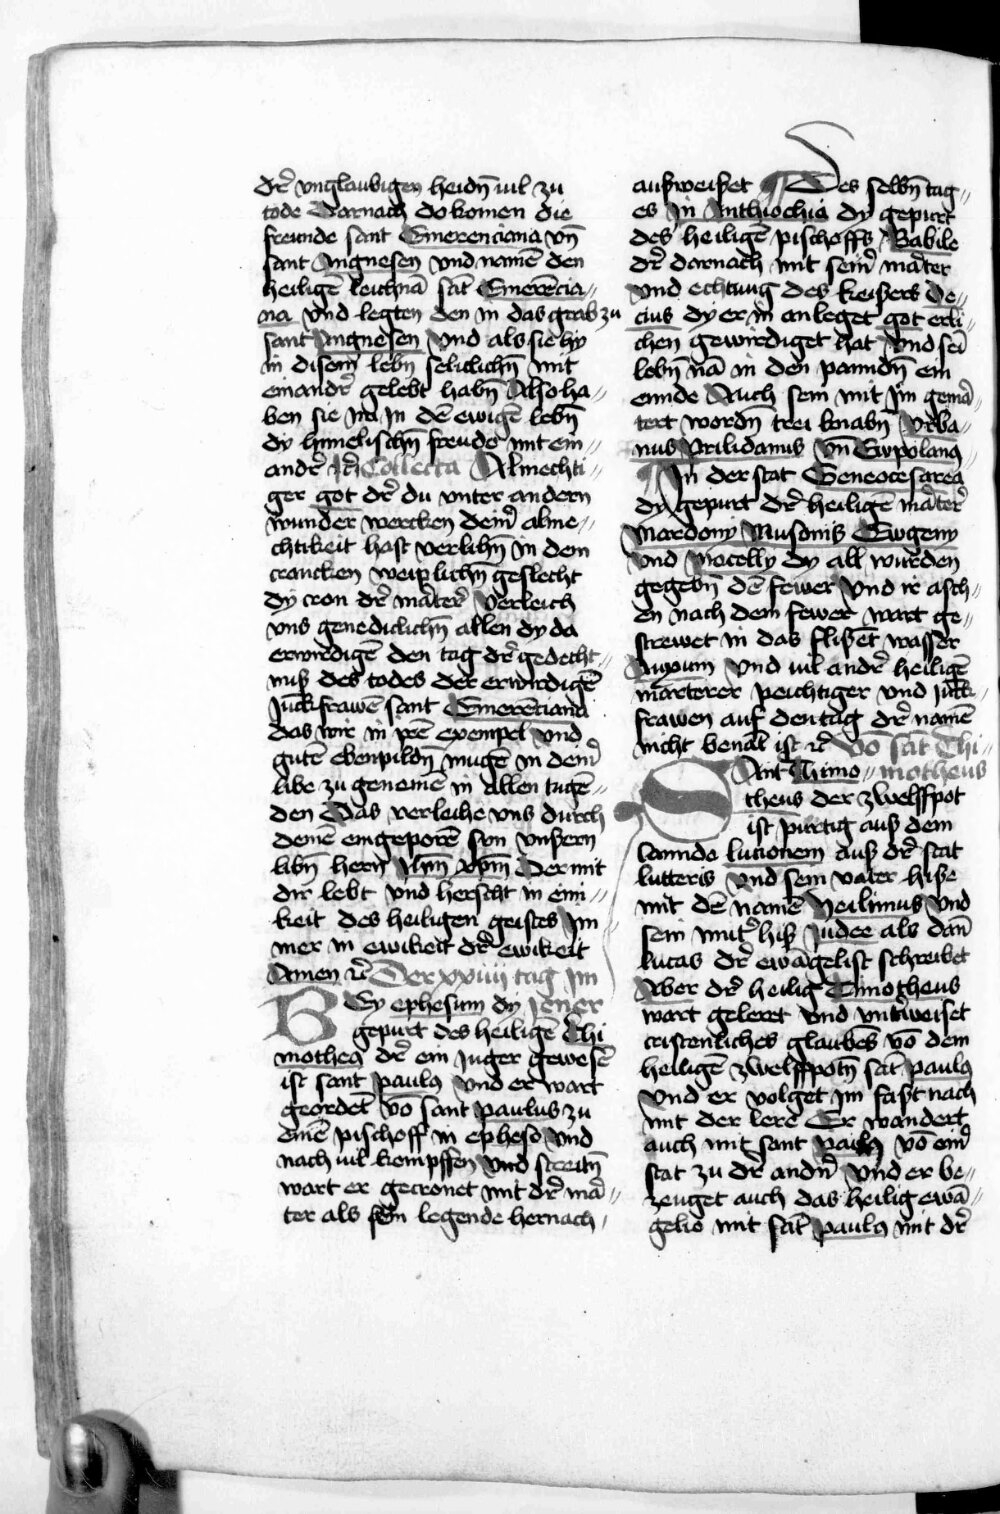 dr̄ vnglaubigen heidn̄ uil zu
tode Darnach do komen die
freunde sant Emerenciana vn̄
sant Angnesen vnd namē den
heiligē leichnā sāt Emerēcia⸗
na vnd legten den in das grab zu
sant Angnesen vnd als sie hy
in disem lebn̄ seliclichn̄ mit
einandr̄ gelebt habn̄ Also ha⸗
ben sie ina in dē ewigē lebn̄
dy himelischn̄ freude mit ein⸗
andr̄ ⁊c̄ Collecta Almechti⸗
ger got dr̄ du unter andern
wunder wercken deinr̄ alme⸗
chtikeit hast verlihn̄ in dem
crancken weiplichn̄ geslecht
dy cron dr̄ mārterr̄ verleich
vns genediclichn̄ allen dy da
erwirdigē den tag dr̄ gedecht⸗
nuß des todes der erwirdigē
Juckfrawē sant Emerēciana
das wir in irē exempel vnd
gutē ebenpildn̄ mugē in deinr̄
libe zu genemē in allen tugē⸗
den Das verleihe vns durch
deinē eingeporē sun vnsern
libn̄ hern̄ ihm̄ xpm̄ Der mit
dir lebt vnd herscht in eini⸗
keit des heiligen geistes Im
mer in ewikeit dr̄ ewikeit
Amen ⁊c̄ Der xxiiii tag im
BEy ephesum dy Jener
gepurt des heiligē Thi
mothea dr̄ ein Juger gewesē
ist sant paulꝰ vnd er wart
geordēt vō sant paulus zu
einē pischoff in epheso vnd
nach uil kempffen vnd streitn̄
wart er gecronet mit dr̄ mar̄
ter als sein legende hernach
außweißet Des selbn̄ tag⸗
es in Anthiochia dy gepurt
des heiligē pischoffs Babile
dr̄ darnach mit seinr̄ marter
vnd echtung des keisers De⸗
cius dy er in anleget got erli⸗
chen gewirdiget hat vnd sei
lebn̄ nā in den panndn̄ ein
ennde Auch sein mit im gemar̄
tert wordn̄ trei knabn̄ Vrba⸗
nus Prilidanus vn̄ Ewpolanꝰ
In der stat Geneocesarea
dy gepurt dr̄ heiligē martr̄
Mardony Musonis Ewgeny
vnd Mocelly dy all wurden
gegebn̄ dē fewer vnd ir asch⸗
en nach dem fewer wart ge⸗
strewet in das flißēt wasser
Auxum vnd uil andr̄ heiligē
marterer peichtiger vnd Juck⸗
frawen auf den tag dr̄ namē
nicht benāt ist ⁊c̄ Vō sāt Thi⸗
SAnt Thimo⸗ motheus
theus der zwelffpot
ist pürtig auß dem
lannde lucionem auß dr̄ stat
lutteris vnd sein vater hiße
mit dē namē Neilimus vnd
sein mutr̄ hiß Judee als dan̄
lucas dr̄ ewāgelist schreibet
Aber dr̄ heilig Timotheus
wart geleret vnd vntr̄weiset
cristenliches glaubēs vō dem
heiligē zwelffpotn̄ sāt paulꝰ
Vnd er volget im fast nach
mit der lere Er wandert
auch mit sant paulꝰ vō einr̄
stat zu dr̄ andn̄ vnd er be⸗
zeuget auch das heilig ewā⸗
gelio mit sāt paulꝰ mit dr̄